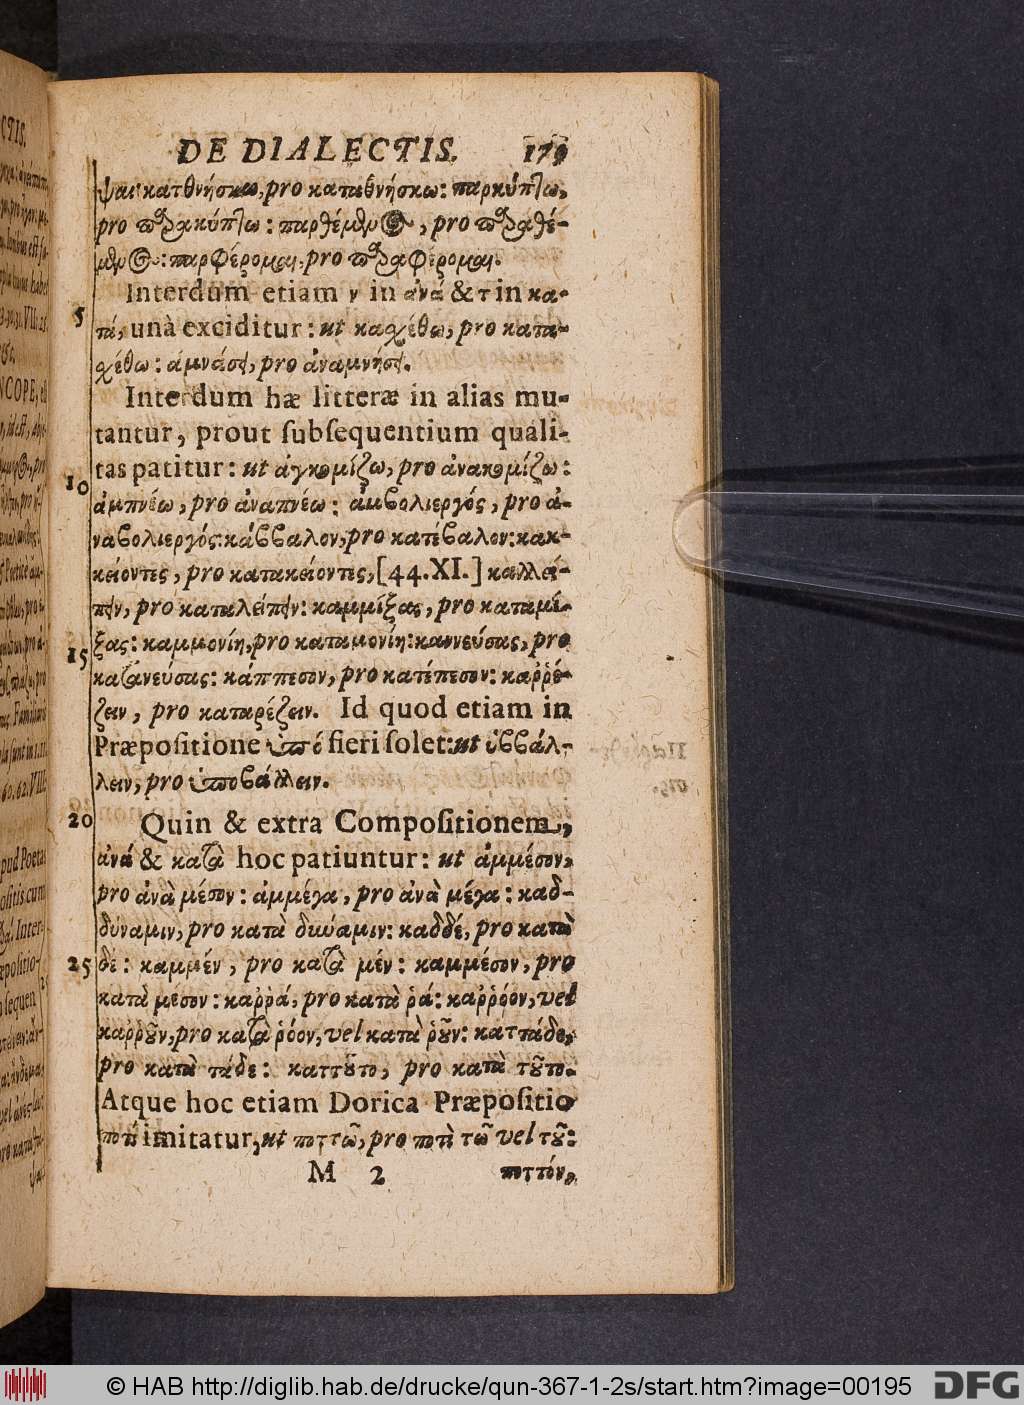 DE DIALECTIS. 179
ψαι· κατθνήσκω, pro καταθνήσκω: παρκύπτω,
pro παρακύπτω: παρθέμενος, pro παραθέ-
μενος: παρφέρομαι, pro παραφέρομαι.
Interdum etiam ν in ἀνά & τ in κα-
5 τά, unà exciditur: ut καχέθω, pro κατα-
χέθω: ἀμνάσει, pro ἀναμνήσει.
Interdum hæ litteræ in alias mu-
tantur, prout ſubſequentium quali-
tas patitur: ut ἀγκομίζω, pro ἀνακομίζω:
10 ἀμπνέω, pro ἀναπνέω: ἀμβολιεργός, pro ἀ-
ναβολιεργός: κάββαλον, pro κατέβαλον: κακ-
κείοντες, pro κατακείοντες, [44.XI.] καλλεί-
πειν, pro καταλείπειν: καμμίξας, pro καταμί-
ξας: καμμονίη, pro καταμονίη: καννεύσας, pro
15 κατανεύσας: κάππεσον, pro κατέπεσον: καῤῥέ-
ζειν, pro καταρέζειν. Id quod etiam in
Præpoſitione ὑπό fieri ſolet: ut ὑββάλ-
λειν, pro ὑποβάλλειν.
20 Quin & extra Compoſitionem,
ἀνά & κατὰ hoc patiuntur: ut ἀμμέσον,
pro ἀνὰ μέσον: ἀμμέγα, pro ἀνὰ μέγα: καδ-
δύναμιν, pro κατὰ δύναμιν: καδδέ, pro κατὰ
25 δέ: καμμέν, pro κατὰ μέν: καμμέσον, pro
κατὰ μέσον: καῤῥά, pro κατὰ ῥά: καῤῥόον, vel
καῤῥοῦν, pro κατὰ ῥόον, vel κατὰ ῥοῦν: καττάδε,
pro κατὰ τάδε: καττοῦτο, pro κατὰ τοῦτο.
Atque hoc etiam Dorica Præpoſitio
ποτὶ imitatur, ut ποττῶ, pro ποτὶ τῶ vel τοῦ:
M 2 ποττόν,
© HAB http://diglib.hab.de/drucke/qun-367-1-2s/start.htm?image=00195 DFG